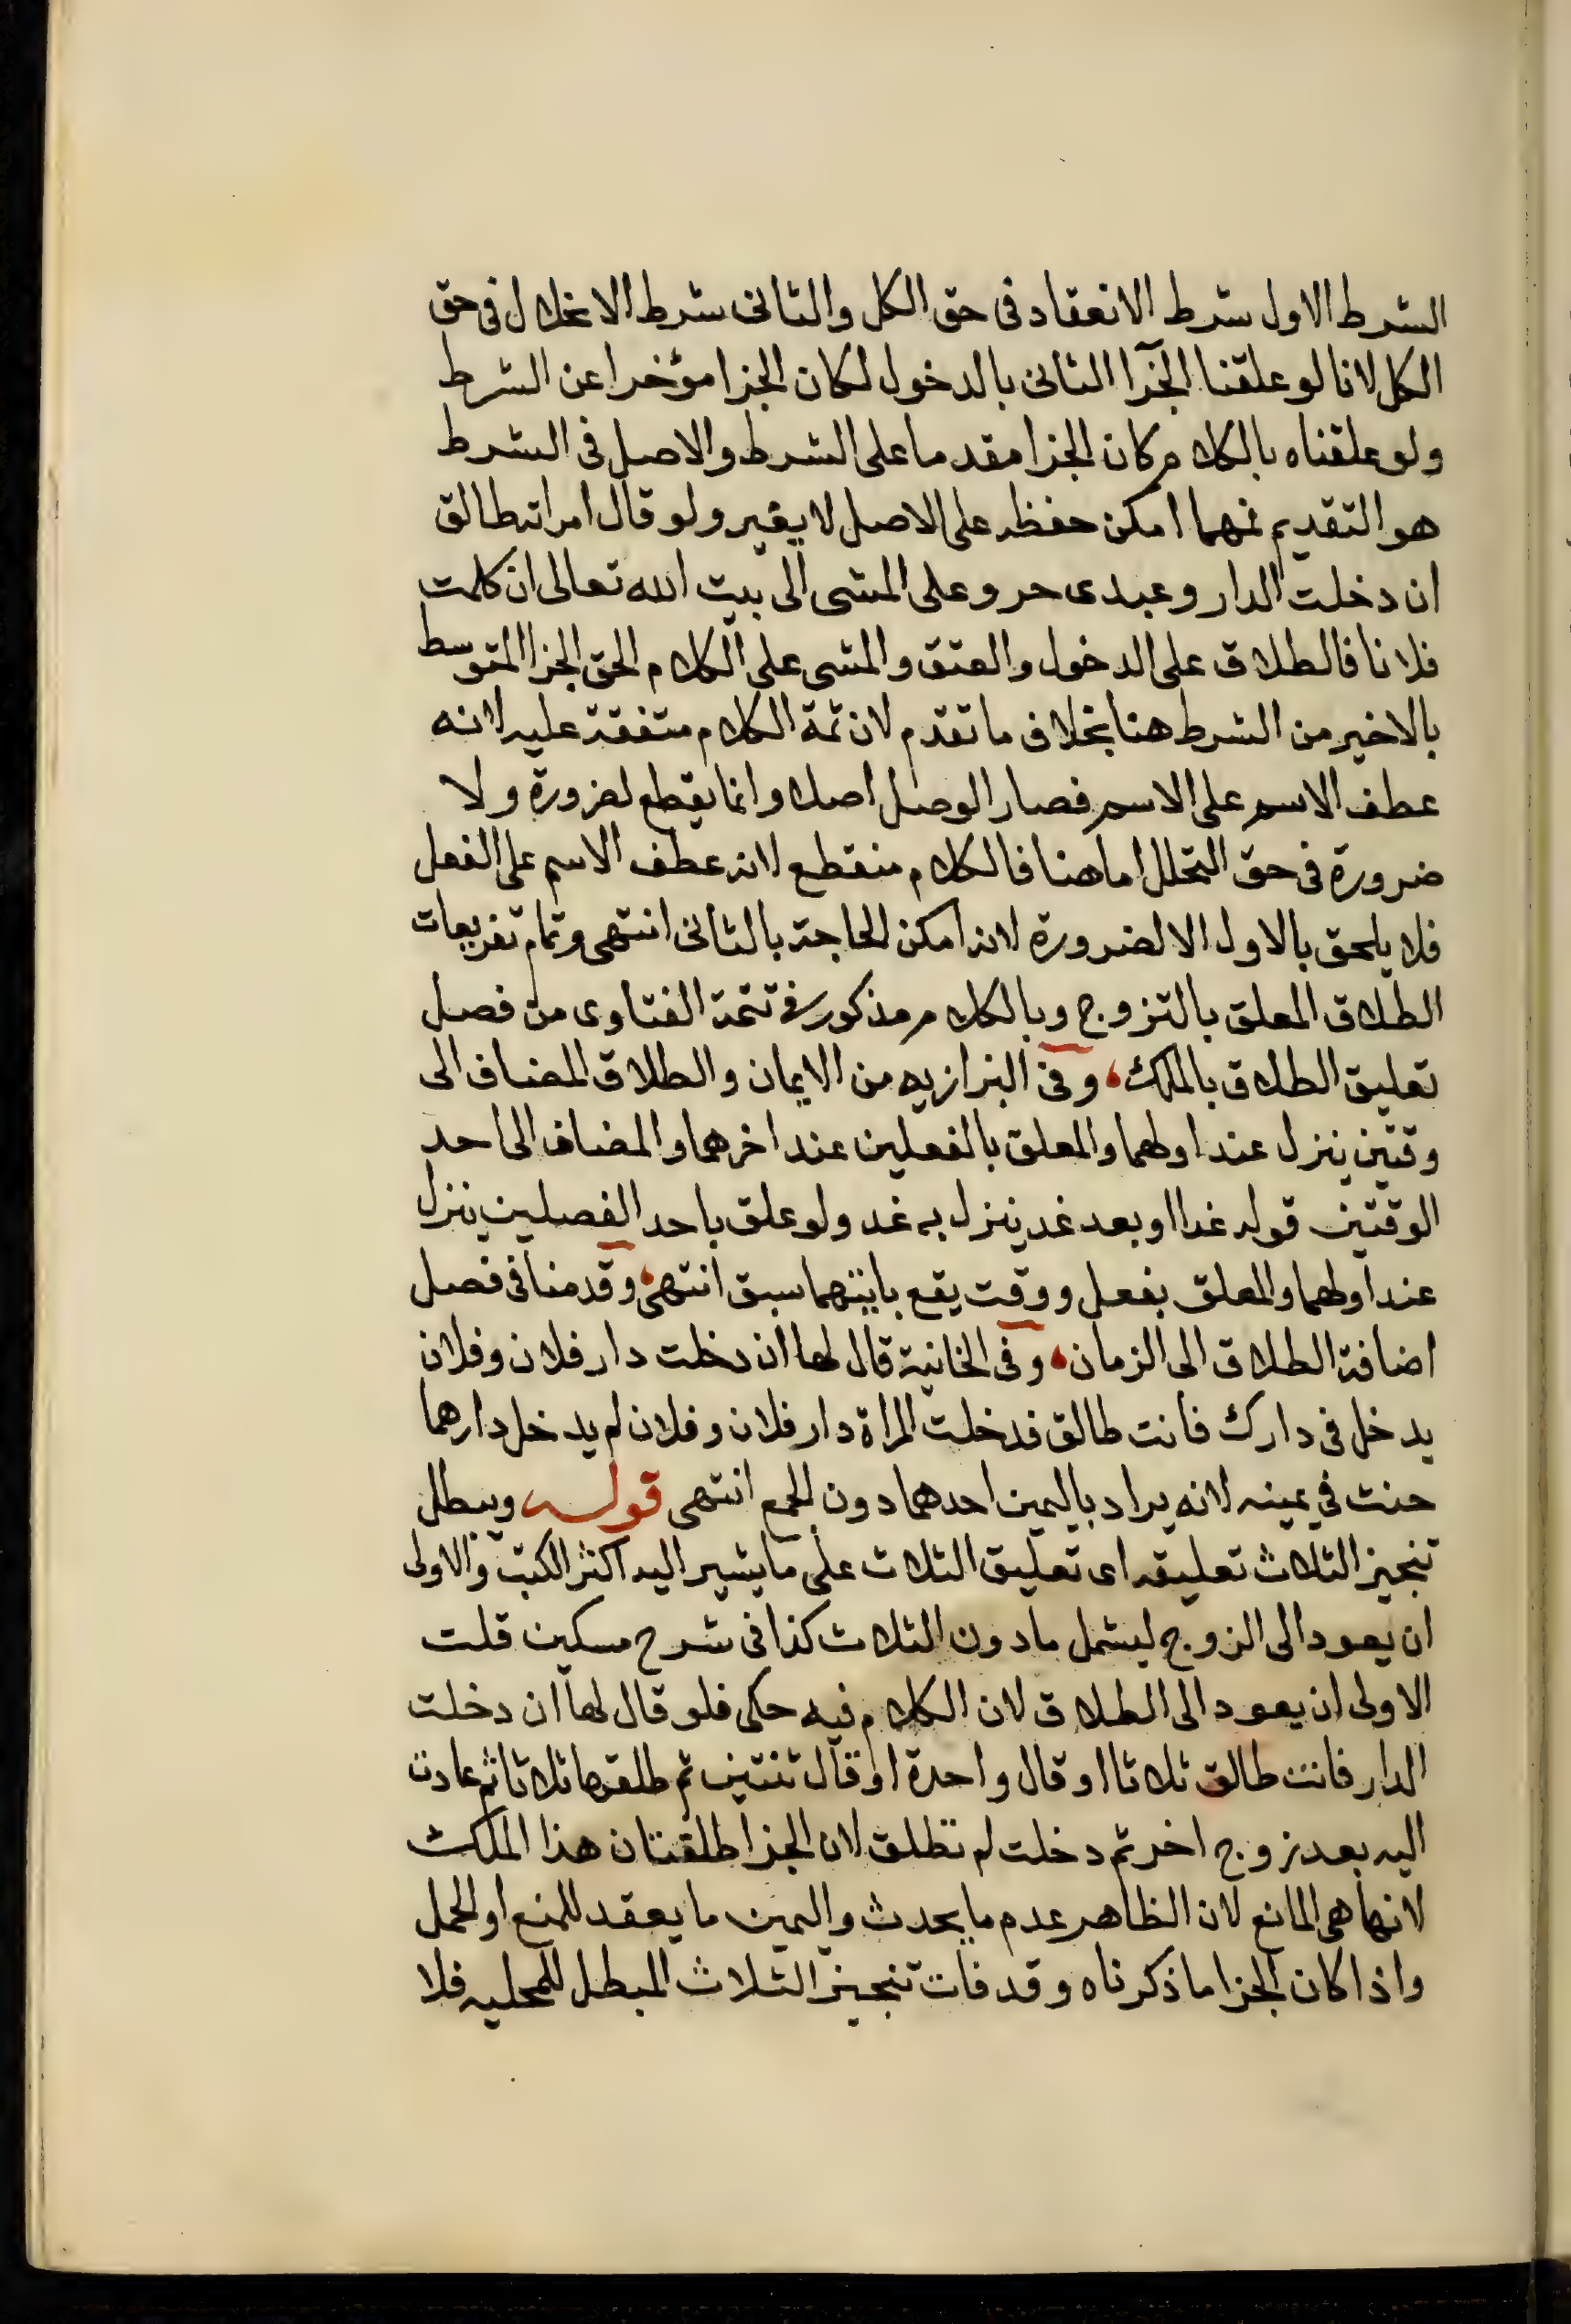 الشرط الاول شرط الانعقاد فى حق الكل والثانى شرط الانحلال فى حق
الكل لانا لو علقنا الجزآ الثانى بالدخول لكان الجزا مؤخرا عن الشرط
ولو علقناه بالكلام كان الجزا مقدما على الشرط والاصل فى الشرط
هو التقديم فمهما امكن حفظه على الاصل لا يغير ولو قال امراته طالق
ان دخلت الدار وعبدى حر وعلى المشى الى بيت الله تعالى ان كلمت
فلانا فالطلاق على الدخول والعتق والمشى على الكلام الحق الجزا المتوسط
بالاخير من الشرط هنا بخلاف ما تقدم لان ثمة الكلام متفقة عليه لانه
عطف الاسم على الاسم فصار الوصل اصلا وانما يقطع لضرورة ولا
ضرورة فى حق التحلل اما هنا فالكلام منقطع لانه عطف الاسم على الفعل
فلا يلحق بالاول الا لضرورة لانه امكن الحاجة بالثانى انتهى وتمام تفريعات
الطلاق المعلق بالتزوج وبالكلام مذكور فى تتمة الفتاوى من فصل
تعليق الطلاق بالملك، وفى البزازيه من الايمان والطلاق المضاف الى
وقتين ينزل عند اولهما والمعلق بالفعلين عند اخرهما والمضاف الى احد
الوقتين قوله غدا او بعد غد ينزل به غد ولو علق باحد الفصلين ينزل
عند اولهما والمعلق بفعل ووقت يقع بايتهما سبق انتهى، وقدمنا فى فصل
اضافة الطلاق الى الزمان، وفى الخانية قال لها ان دخلت دار فلان وفلان
يدخل فى دارك فانت طالق فدخلت المراة دار فلان وفلان لم يدخل دارهما
حنث فى يمينه لانه يراد باليمين احدهما دون الجمع انتهى قوله ويبطل
تنجيز الثلاث تعليقه اى تعليق الثلاث على ما يشير اليه اكثر الكتب والاولى
ان يعود الى الزوج ليشمل ما دون الثلاث كذا فى شرح مسكين قلت
الاولى ان يعود الى الطلاق لان الكلام فيه حكى فلو قال لها ان دخلت
الدار فانت طالق ثلاثا او قال واحدة او قال ثنتين ثم طلقها ثلاثا ثم عادت
اليه بعد زوج اخر ثم دخلت لم تطلق لان الجزا طلقتان هذا الملك
لانها هى المانع لان الظاهر عدم ما يحدث واليمين ما يعقد للمنع او الحمل
واذا كان الجزا ما ذكرناه وقد فات تنجيز الثلاث المبطل للمحليه فلا